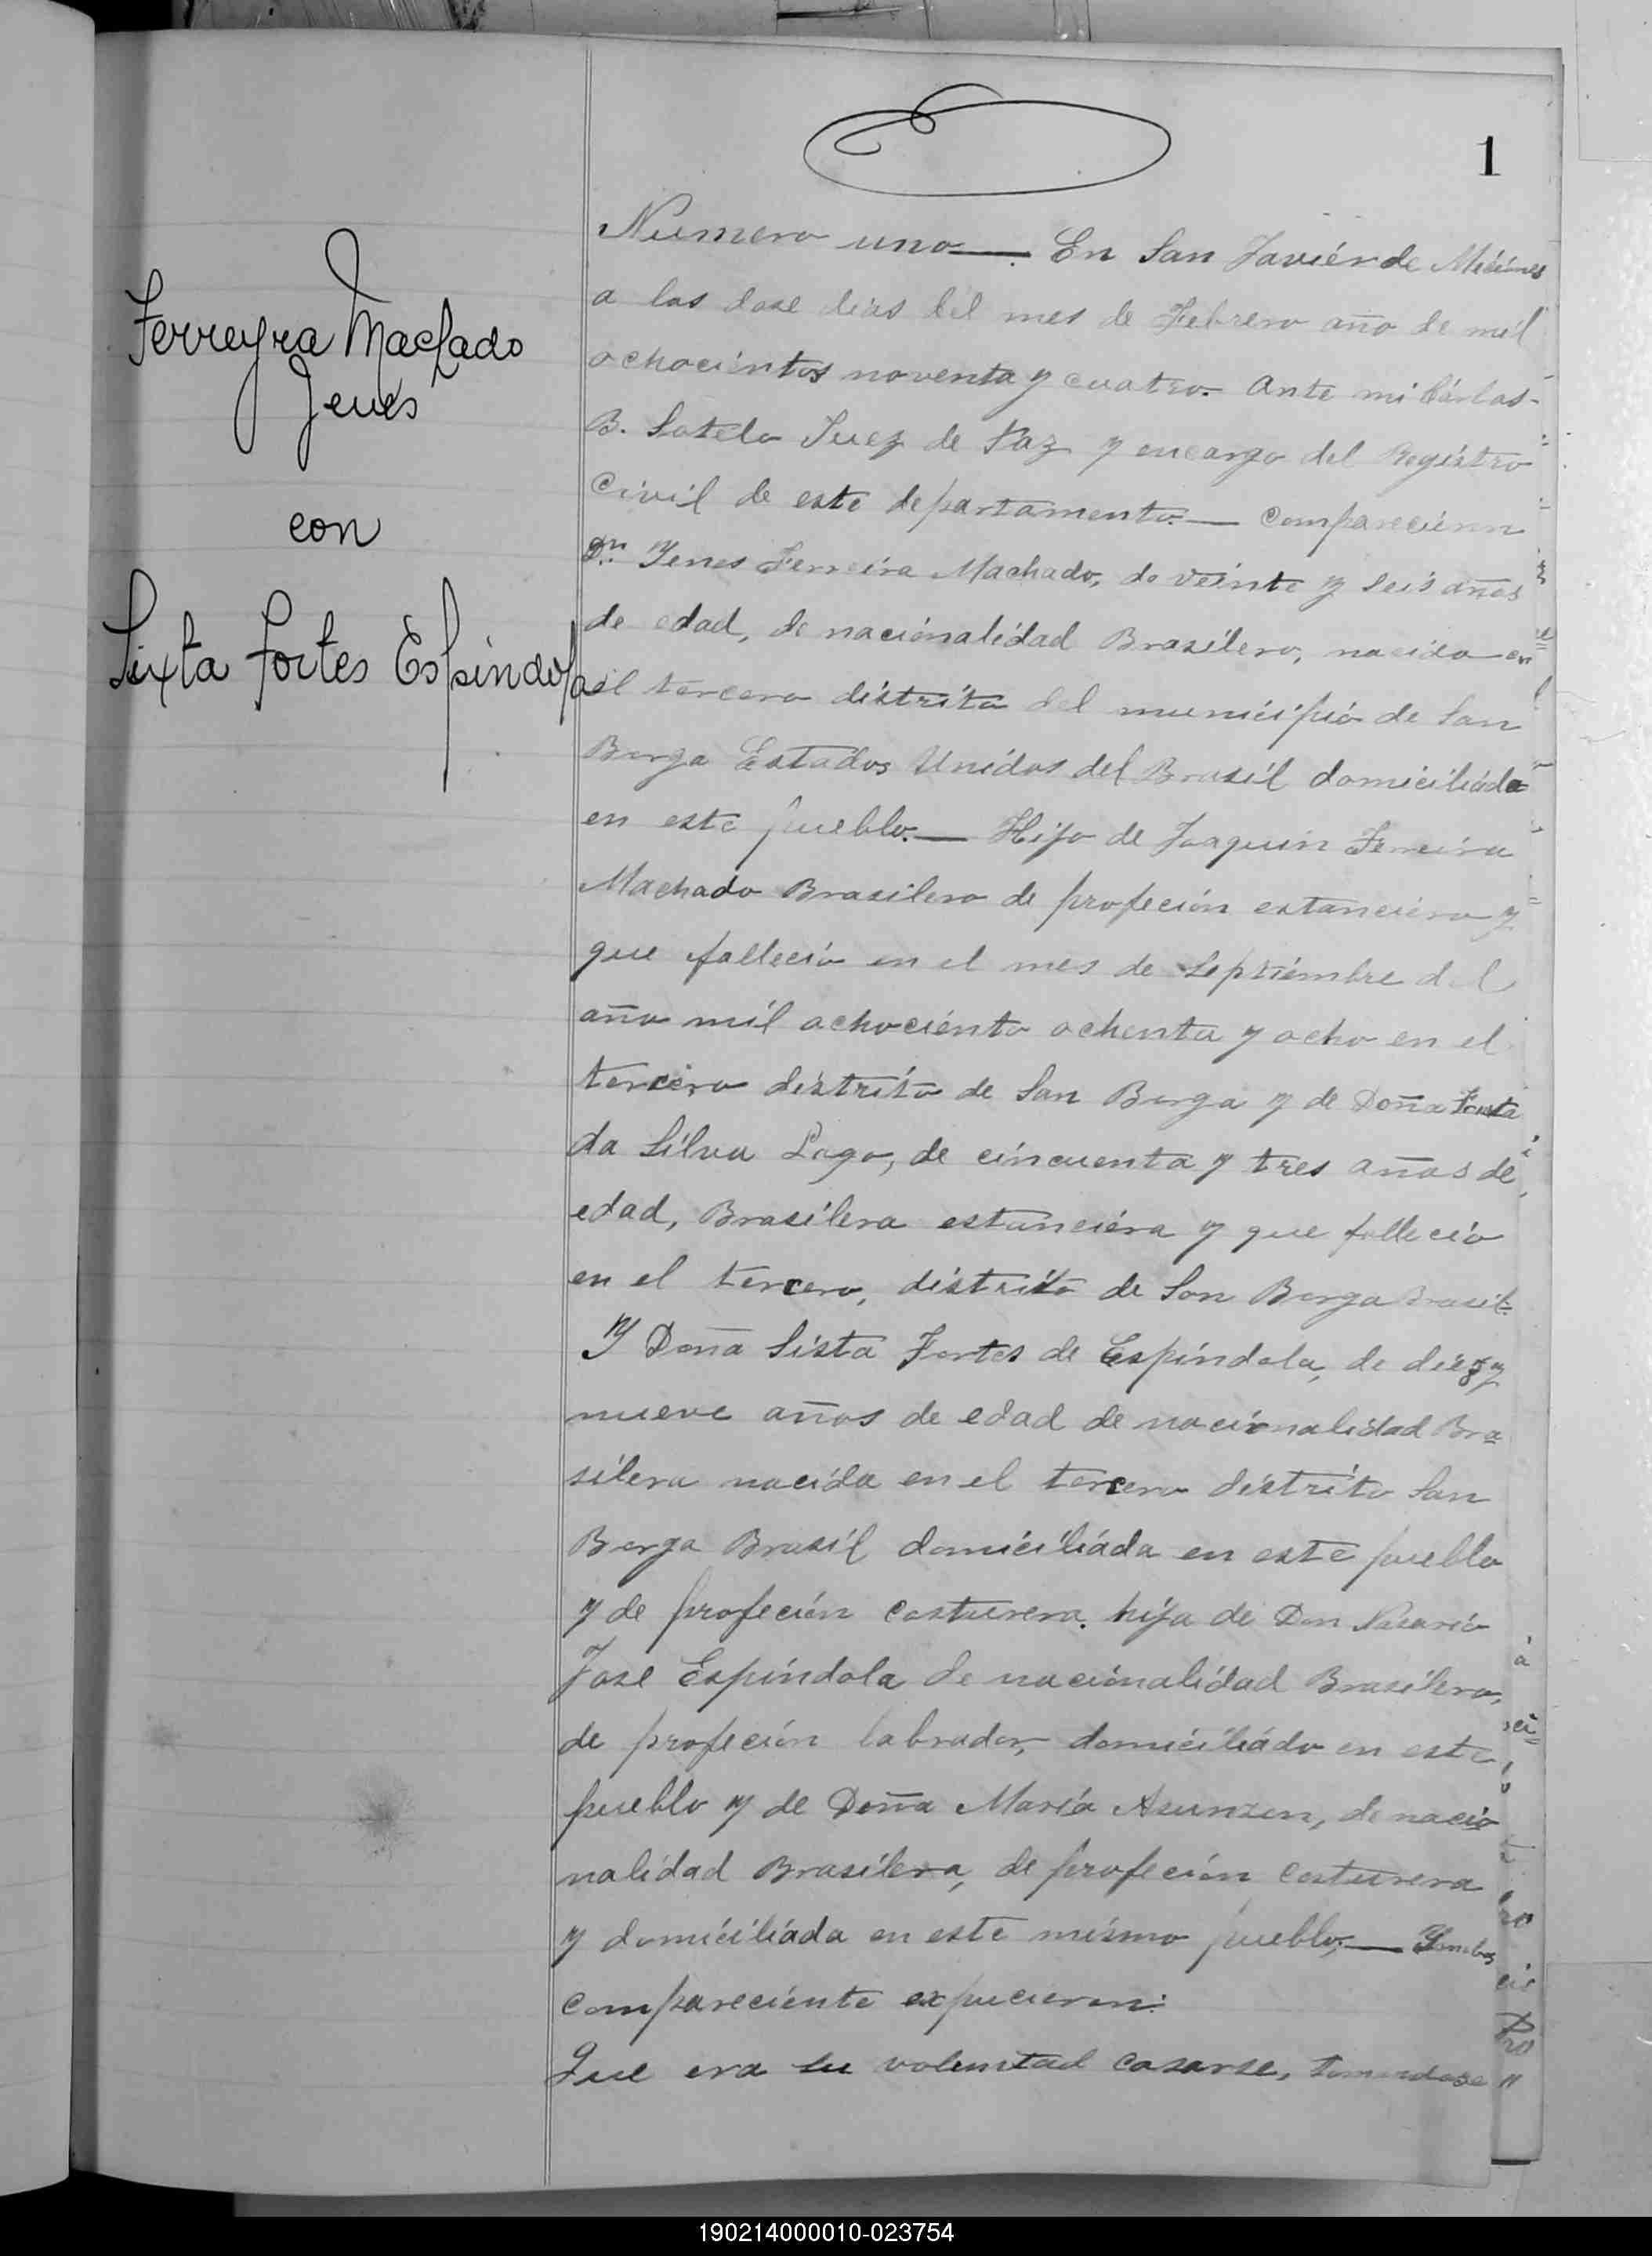 1
Ferreyra Machado
Jenes
con
Sixta Fortes Espindola
Numero uno — En San Javiér de Misiones
a los dose dias del mes de Febrero año de mil
ochocientos noventa y cuatro. Ante mi Cárlos
B. Sotelo Juez de Paz y encargo del Registro
Civil de este departamento. — Comparecieron
Dn. Jenes Ferreira Machado, de veinte y seis años
de edad, de nacionalidad Brasilero, nacido en
el tercero distrito del municipio de San
Borga Estados Unidos del Brasil domiciliado
en este pueblo. — Hijo de Joaquin Ferreira
Machado Brasilero de profeción estanciero y
que falleció en el mes de Septiembre del
año mil ochociento ochenta y ocho en el
tercero distrito de San Borga y de Doña Fausta
da Silva Lago, de cincuenta y tres años de
edad, Brasilera estanciera y que falleció
en el tercero, distrito de San Borga Brasil.
Y Doña Sista Fortes de Espindola, de diez y
nueve años de edad de nacionalidad Bra=
silera nacida en el tercero distrito San
Borga Brasil domiciliáda en este pueblo
y de profeción costurera. hija de Don
José Espindola de nacionalidad Brasilero,
de profeción labrador, domiciliádo en este
pueblo y de Doña María Asunzen, de nacio
nalidad Brasilera, de profeción costurera
y domiciliáda en este mismo pueblo, —
compareciente expucieron:
Que era su voluntad casarse, tomandose
190214000010-023754